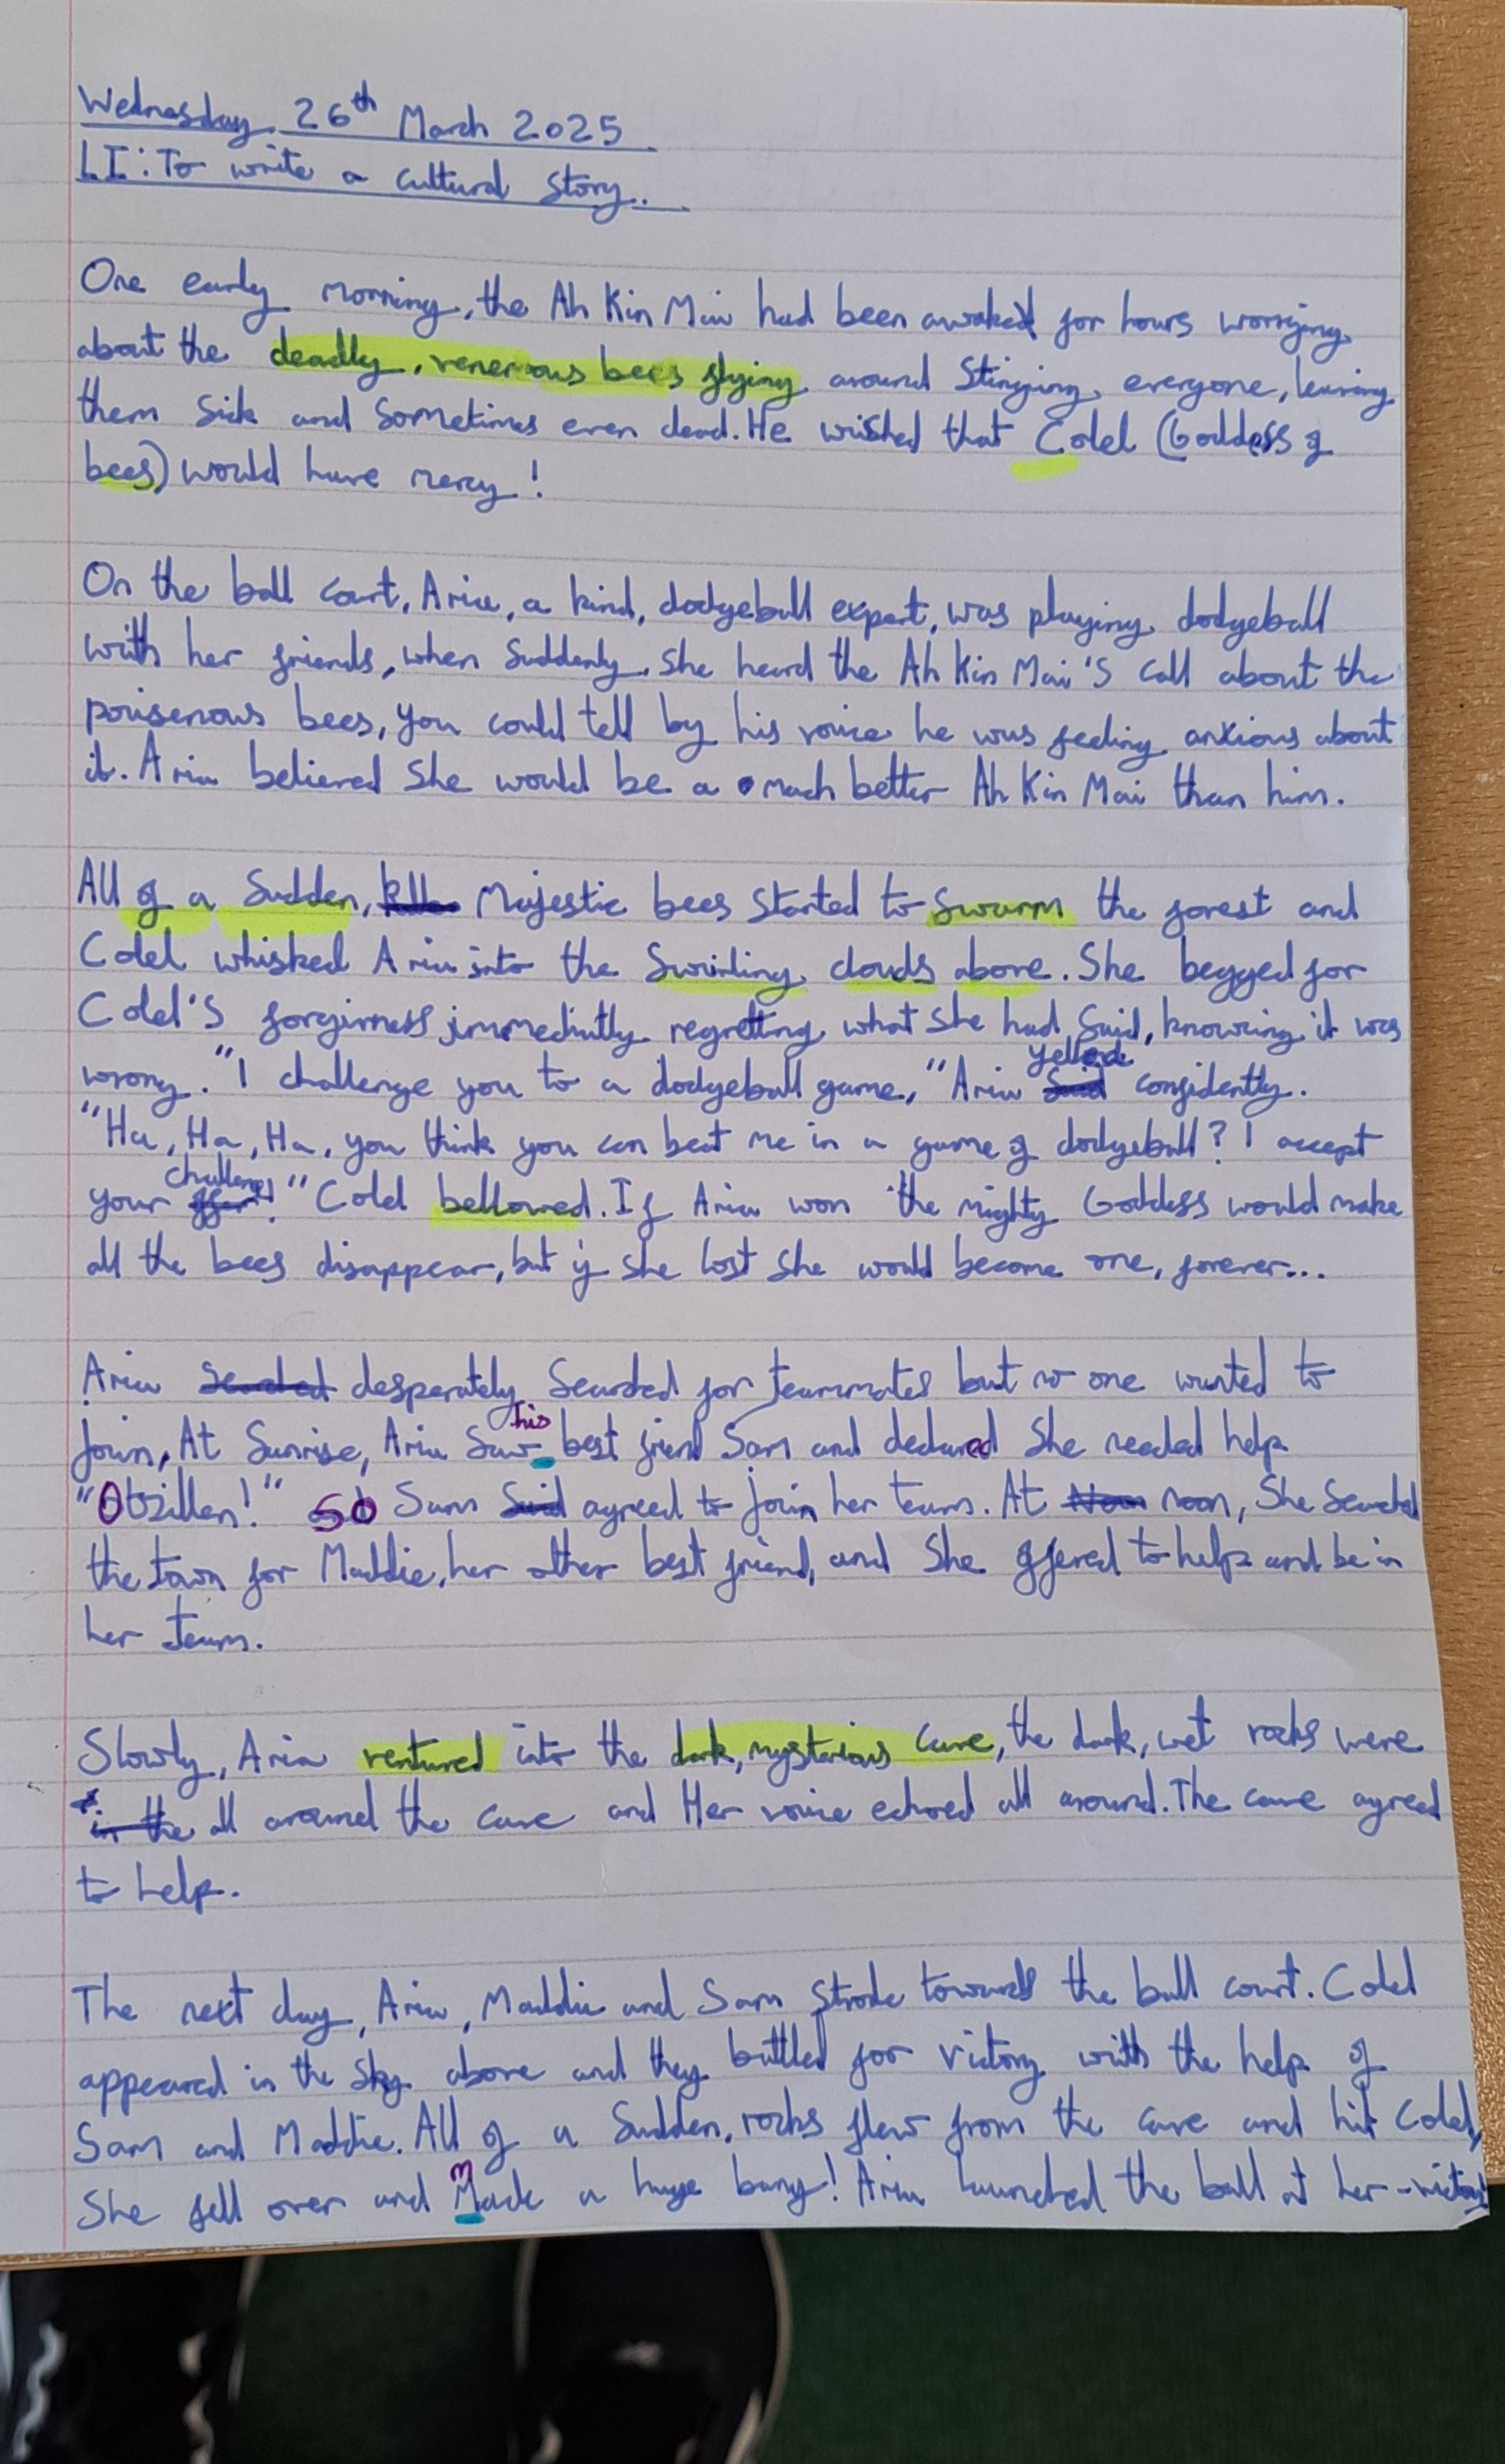 Wednesday 26th March 2025
LI: To write a cultural story.
One early morning, the Ah Kin Mai had been awake for hours worrying
about the deadly, venemous bees flying around stinging everyone, leaving
them sick and sometimes even dead. He wished that Colel (Goddess of
bees) would have mercy!
On the ball court, Aria, a kind, dodgeball expert, was playing dodgeball
with her friends, when suddenly she heard the Ah Kin Mai's call about the
poisenous bees, you could tell by his voice he was feeling anxious about
it. Aria believed she would be a much better Ah Kin Mai than him.
All of a sudden, Majestic bees started to swarm the forest and
Colel whisked Aria into the swirling clouds above. She begged for
Colel's forgivness immediatly regretting what she had said, knowing it was
wrong. "I challenge you to a dodgeball game," Aria yelled confidently.
"Ha, Ha, Ha, you think you can beat me in a game of dodgeball? I accept
your challenge!" Colel bellowed. If Aria won the mighty Goddess would make
all the bees disappear, but if she lost she would become one, forever...
Aria desperately searched for teammates but no one wanted to
join, At sunrise, Aria saw his best friend Sam and declared she needed help
"Otzillen!" so Sam agreed to join her team. At noon, she searched
the town for Maddie, her other best friend, and she offered to help and be in
her team.
Slowly, Aria ventured into the dark, mysterious cave, the dark, wet rocks were
all around the cave and Her voice echoed all around. The cave agreed
to help.
The next day, Aria, Maddie and Sam strode towards the ball court. Colel
appeared in the sky above and they battled for victory with the help of
Sam and Maddie. All of a sudden, rocks flew from the cave and hit Colel,
She fell over and made a huge bang! Aria launched the ball at her - victory!